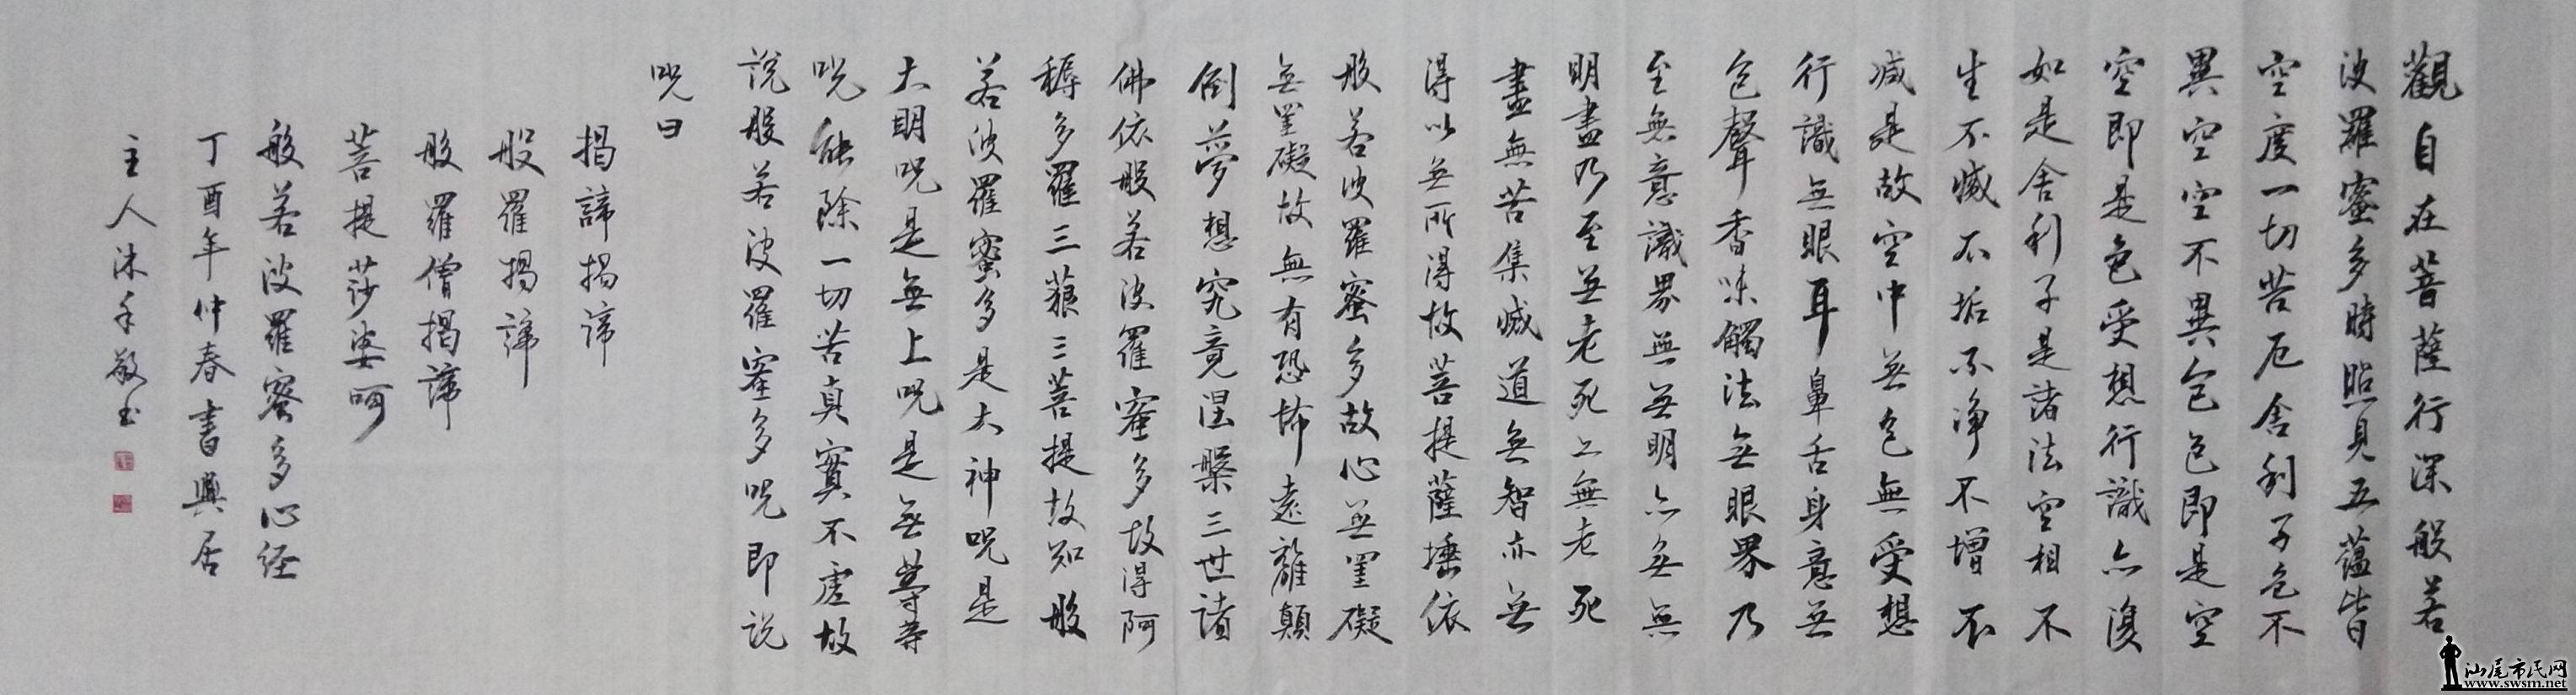 觀自在菩薩行深般若
波羅蜜多時照見五蘊皆
空度一切苦厄舍利子色不
異空空不異色色即是空
空即是色受想行識亦復
如是舍利子是諸法空相不
生不滅不垢不淨不增不
減是故空中無色無受想
行識無眼耳鼻舌身意無
色聲香味觸法無眼界乃
至無意識界無無明亦無無
明盡乃至無老死亦無老死
盡無苦集滅道無智亦無
得以無所得故菩提薩埵依
般若波羅蜜多故心無罣礙
無罣礙故無有恐怖遠離顛
倒夢想究竟涅槃三世諸
佛依般若波羅蜜多故得阿
耨多羅三藐三菩提故知般
若波羅蜜多是大神咒是
大明咒是無上咒是無等等
咒能除一切苦真實不虛故
說般若波羅蜜多咒即說
咒曰
揭諦揭諦
般羅揭諦
般羅僧揭諦
菩提莎婆呵
般若波羅蜜多心經
丁酉年仲春書興居
主人沐手敬書
汕尾市民网
www.swsm.net